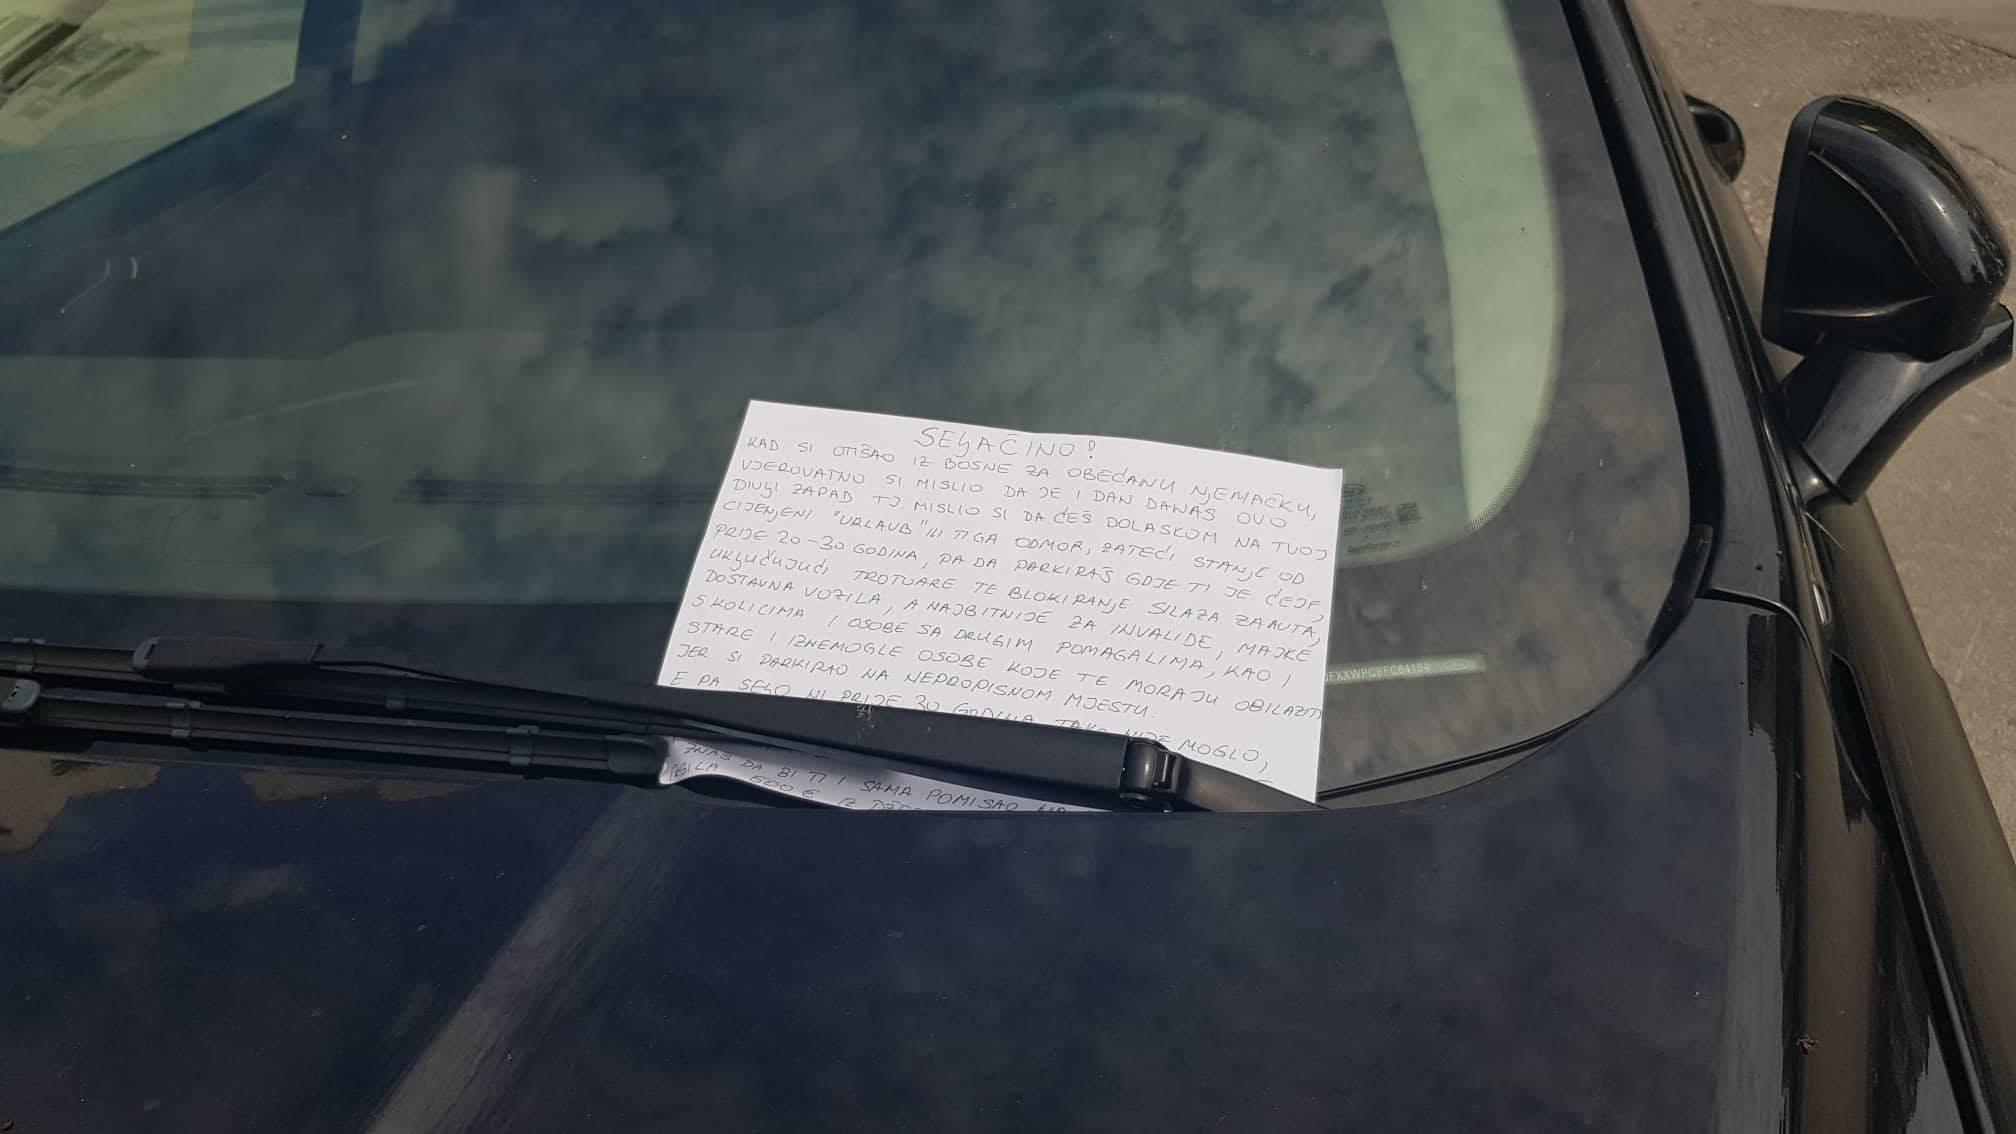 SELJAČINO!
KAD SI OTIŠAO IZ BOSNE ZA OBEĆANU NJEMAČKU,
VJEROVATNO SI MISLIO DA JE I DAN DANAS OVO
DIVLJI ZAPAD TJ. MISLIO SI DA ĆEŠ DOLASKOM NA TVOJ
CIJENJENI "URLAUB" ILI TI GA ODMOR, ZATEĆI STANJE OD
PRIJE 20-30 GODINA, PA DA PARKIRAŠ GDJE TI JE ĆEJF,
UKLJUČUJUĆI TROTUARE TE BLOKIRANJE SILAZA ZA AUTA,
DOSTAVNA VOZILA, A NAJBITNIJE ZA INVALIDE, MAJKE
S KOLICIMA I OSOBE SA DRUGIM POMAGALIMA, KAO I
STARE I IZNEMOGLE OSOBE KOJE TE MORAJU OBILAZITI
JER SI PARKIRAO NA NEPROPISNOM MJESTU.
E PA SELJO NI PRIJE 30 GODINA TAKO NIJE MOGLO,
ZNAŠ DA BI TI I SAMA POMISAO
500 € IZ